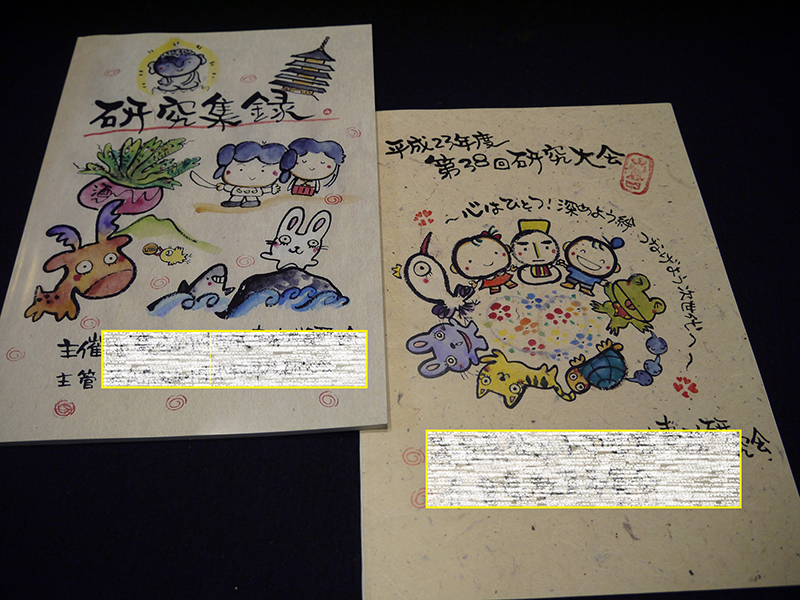 研究集録
主催
主管
平成23年度
第38回研究大会
～心はひとつ！深めよう絆 つなげよう次世代へ～